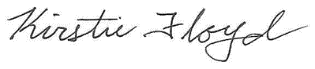 Kirstie Floyd